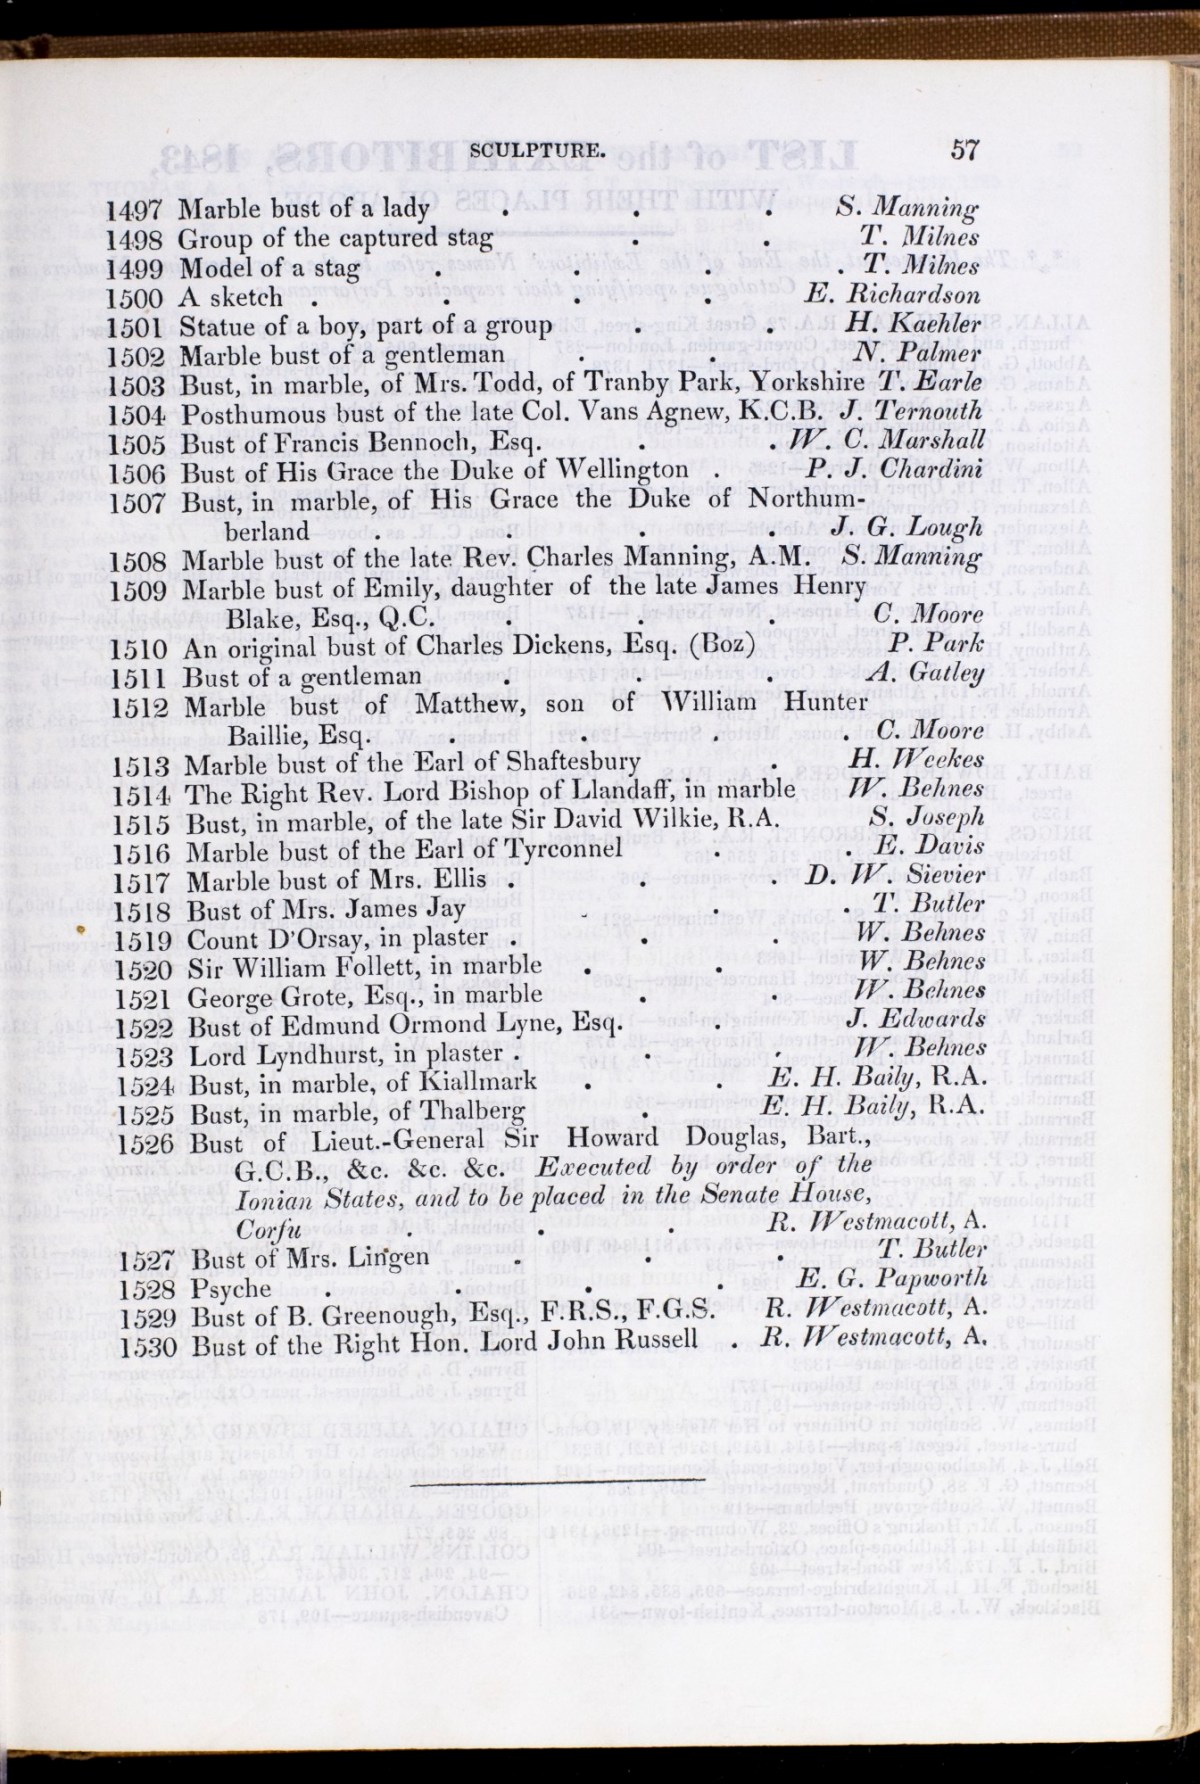 SCULPTURE. 57
1497 Marble bust of a lady . . . S. Manning
1498 Group of the captured stag . . T. Milnes
1499 Model of a stag . . . . T. Milnes
1500 A sketch . . . . E. Richardson
1501 Statue of a boy, part of a group . . H. Kaehler
1502 Marble bust of a gentleman . . N. Palmer
1503 Bust, in marble, of Mrs. Todd, of Tranby Park, Yorkshire T. Earle
1504 Posthumous bust of the late Col. Vans Agnew, K.C.B. J. Ternouth
1505 Bust of Francis Bennoch, Esq. . W. C. Marshall
1506 Bust of His Grace the Duke of Wellington P. J. Chardini
1507 Bust, in marble, of His Grace the Duke of Northum-
berland . . . . J. G. Lough
1508 Marble bust of the late Rev. Charles Manning, A.M. S. Manning
1509 Marble bust of Emily, daughter of the late James Henry
Blake, Esq., Q.C. . . . C. Moore
1510 An original bust of Charles Dickens, Esq. (Boz) P. Park
1511 Bust of a gentleman . . . A. Gatley
1512 Marble bust of Matthew, son of William Hunter
Baillie, Esq. . . . . C. Moore
1513 Marble bust of the Earl of Shaftesbury . H. Weekes
1514 The Right Rev. Lord Bishop of Llandaff, in marble W. Behnes
1515 Bust, in marble, of the late Sir David Wilkie, R.A. S. Joseph
1516 Marble bust of the Earl of Tyrconnel . . E. Davis
1517 Marble bust of Mrs. Ellis . . . D. W. Sievier
1518 Bust of Mrs. James Jay . . . T. Butler
1519 Count D'Orsay, in plaster . . . W. Behnes
1520 Sir William Follett, in marble . . W. Behnes
1521 George Grote, Esq., in marble . . W. Behnes
1522 Bust of Edmund Ormond Lyne, Esq. . J. Edwards
1523 Lord Lyndhurst, in plaster . . . W. Behnes
1524 Bust, in marble, of Kiallmark . . E. H. Baily, R.A.
1525 Bust, in marble, of Thalberg . E. H. Baily, R.A.
1526 Bust of Lieut.-General Sir Howard Douglas, Bart.,
G.C.B., &c. &c. &c. Executed by order of the
Ionian States, and to be placed in the Senate House,
Corfu . . . R. Westmacott, A.
1527 Bust of Mrs. Lingen . . . T. Butler
1528 Psyche . . . . E. G. Papworth
1529 Bust of B. Greenough, Esq., F.R.S., F.G.S. R. Westmacott, A.
1530 Bust of the Right Hon. Lord John Russell . R. Westmacott, A.